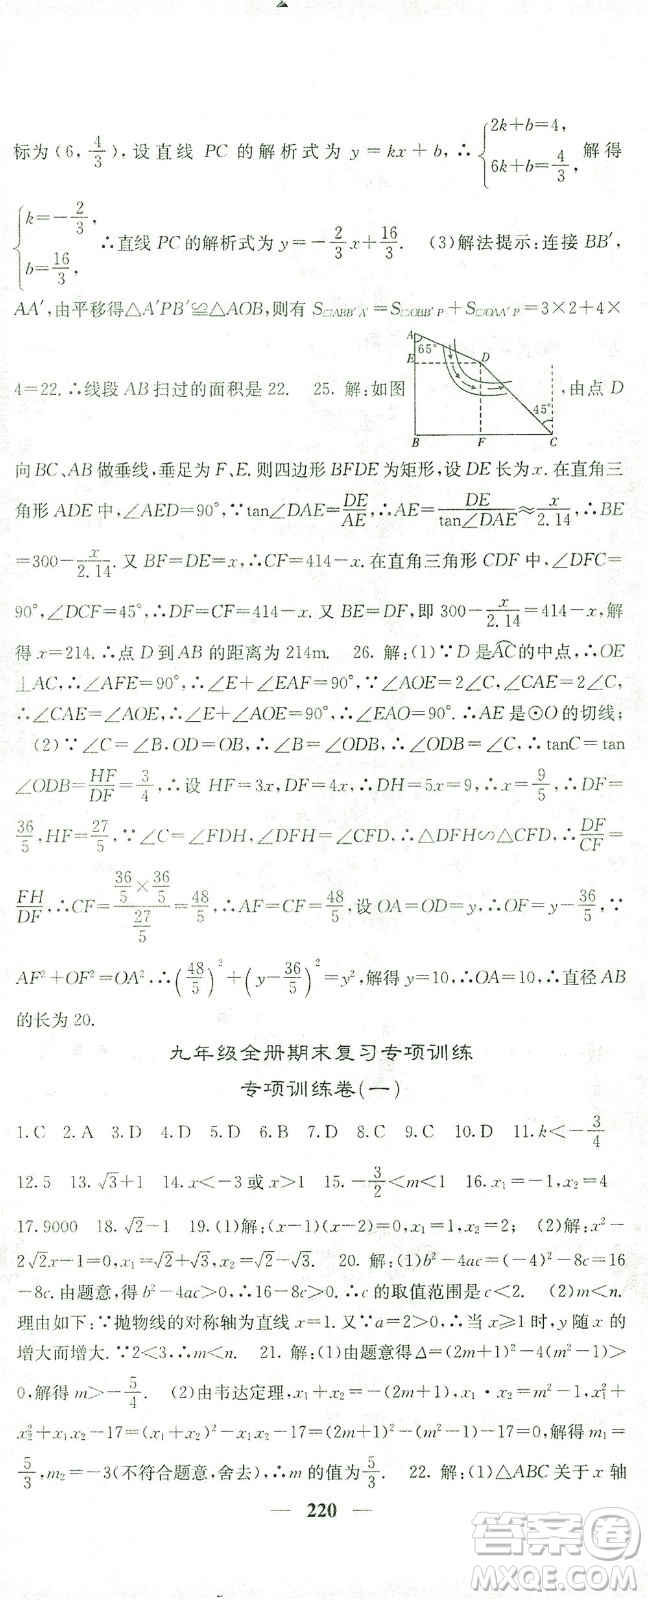 标为(6, 4/3), 设直线 PC 的解析式为 y=kx+b, ∴ {2k+b=4, 6k+b=4/3, 解得
{k=-2/3, b=16/3, ∴直线PC的解析式为 y=-2/3x+16/3. (3)解法提示:连接 BB′,
AA′,由平移得△A′PB′≌△AOB,则有 S□ABB′A′=S□OBB′P+S□OAA′P=3×2+4×
4=22.∴线段 AB 扫过的面积是 22. 25. 解:如图 ,由点 D
A 65° E D 45° B F C
向BC、AB做垂线,垂足为F、E.则四边形BFDE为矩形,设DE长为x.在直角三
角形 ADE 中,∠AED=90°,∵tan∠DAE=DE/AE,∴AE=DE/tan∠DAE≈x/2.14,∴BE
=300-x/2.14.又BF=DE=x,∴CF=414-x.在直角三角形CDF中,∠DFC=
90°,∠DCF=45°,∴DF=CF=414-x.又 BE=DF,即 300-x/2.14=414-x,解
得 x=214.∴点 D 到 AB 的距离为 214m. 26. 解:(1)∵D 是AC⌒的中点,∴OE
⊥AC,∴∠AFE=90°,∴∠E+∠EAF=90°,∵∠AOE=2∠C,∠CAE=2∠C,
∴∠CAE=∠AOE,∴∠E+∠AOE=90°,∴∠EAO=90°.∴AE是⊙O的切线;
(2)∵∠C=∠B.OD=OB,∴∠B=∠ODB,∴∠ODB=∠C,∴tanC=tan
∠ODB=HF/DF=3/4,∴设 HF=3x,DF=4x,∴DH=5x=9,∴x=9/5,∴DF=
36/5,HF=27/5,∵∠C=∠FDH,∠DFH=∠CFD,∴△DFH∽△CFD,∴DF/CF=
FH/DF,∴CF=(36/5×36/5)/(27/5)=48/5,∴AF=CF=48/5,设 OA=OD=y,∴OF=y-36/5,∵
AF²+OF²=OA²,∴(48/5)²+(y-36/5)²=y²,解得 y=10,∴OA=10,∴直径AB
的长为20.
九年级全册期末复习专项训练
专项训练卷(一)
1.C 2.A 3.D 4.C 5.B 6.B 7.D 8.D 9.C 10.D 11.k<-3/4
12.5 13.√3+1 14.x<-3或x>1 15.-3/2<m<1 16.x₁=-1,x₂=4
17.9000 18.√2-1 19.(1)解:(x-1)(x-2)=0,x₁=1,x₂=2;(2)解:x²-
2√2x=0,x₁=0,x₂=2√2. 20. 解:(1)b²-4ac=(-4)²-8c=16
-8c.由题意,得b²-4ac>0,∴16-8c>0.∴c的取值范围是c<2. (2)m<n.
理由如下:∵抛物线的对称轴为直线 x=1.又∵a=2>0,∴当 x≥1时,y随x的
增大而增大.∵2<3,∴m<n. 21. 解:(1)由题意得 Δ=(2m+1)²-4(m²-1)>
0,解得 m>-5/4. (2)由韦达定理,x₁+x₂=-(2m+1),x₁·x₂=m²-1,x₁²+
x₂²+x₁x₂-17=(x₁+x₂)²-x₁x₂-17=(2m+1)²-(m²-1)-17=0.解得 m₁=
5/3,m₂=-3(不符合题意,舍去),∴m的值为5/3. 22. 解:(1)△ABC 关于 x 轴
— 220 —
答案圈
MXQE.COM